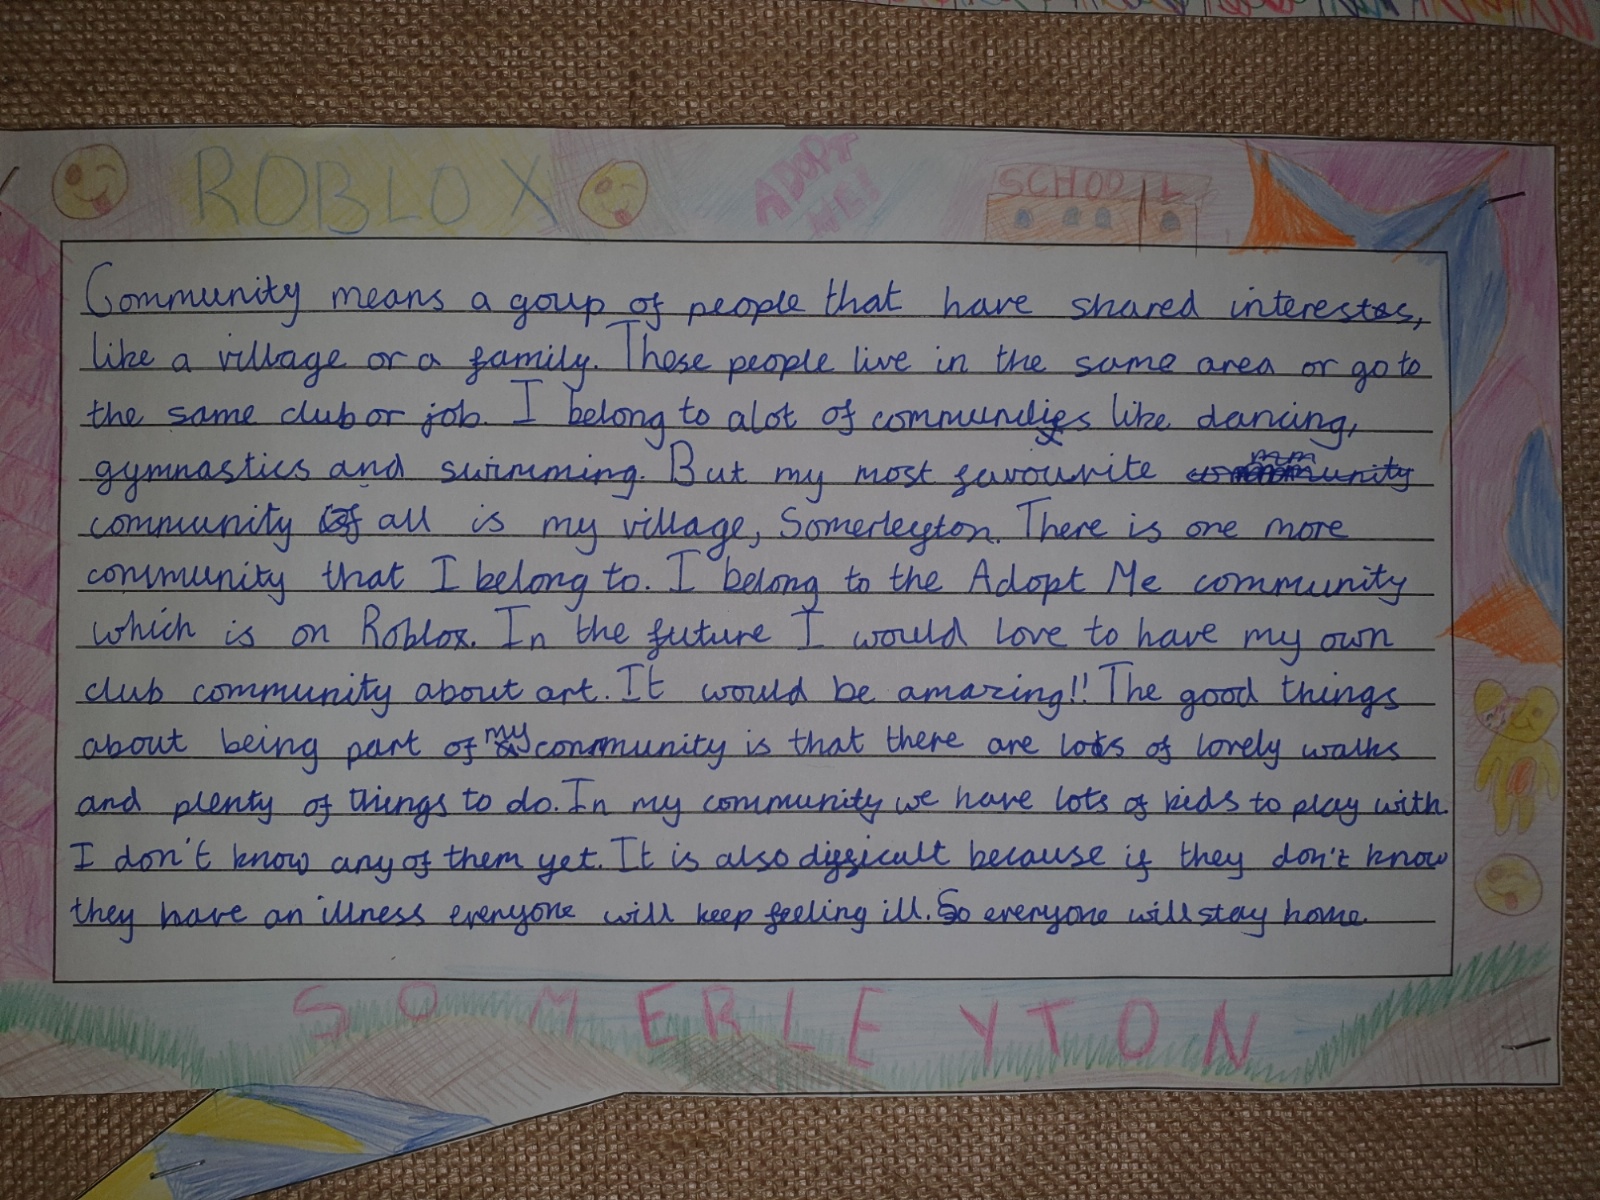 ROBLOX ADOPT ME! SCHOOL
Community means a goup of people that have shared interestes,
like a village or a family. These people live in the same area or go to
the same club or job. I belong to alot of communities like dancing,
gymnastics and swimming. But my most favourite community
community of all is my village, Somerleyton. There is one more
community that I belong to. I belong to the Adopt Me community
which is on Roblox. In the future I would love to have my own
club community about art. It would be amazing!! The good things
about being part of my community is that there are lots of lovely walks
and plenty of things to do. In my community we have lots of kids to play with
I don't know any of them yet. It is also difficult because if they don't know
they have an illness everyone will keep feeling ill. So everyone will stay home.
SOMERLEYTON